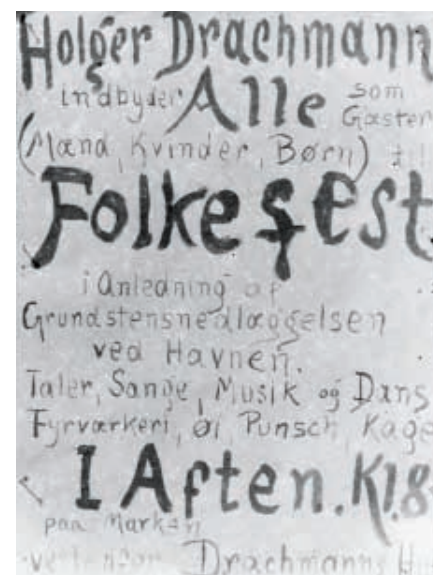 Holger Drachmann
indbyder Alle som Gæster
(Mænd, Kvinder, Børn) til
Folkefest
i Anledning af
Grundstensnedlæggelsen
ved Havnen.
Taler, Sange, Musik og Dans
Fyrværkeri, Øl, Punsch, Kage
I Aften. Kl. 8
paa Marken
Drachmanns